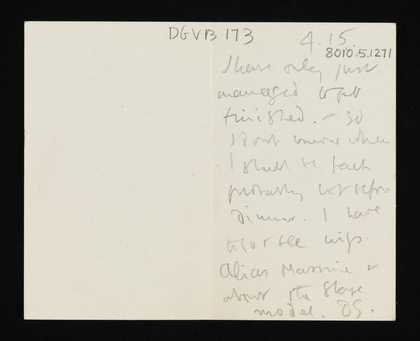 DGVB 173
4.15.
8010.5.1271
I have only just
managed to get
finished. – so
I don't know when
I shall be back
probably not before
Dinner. I have
to see
Alicia Massine &
about the stage
model. DS.